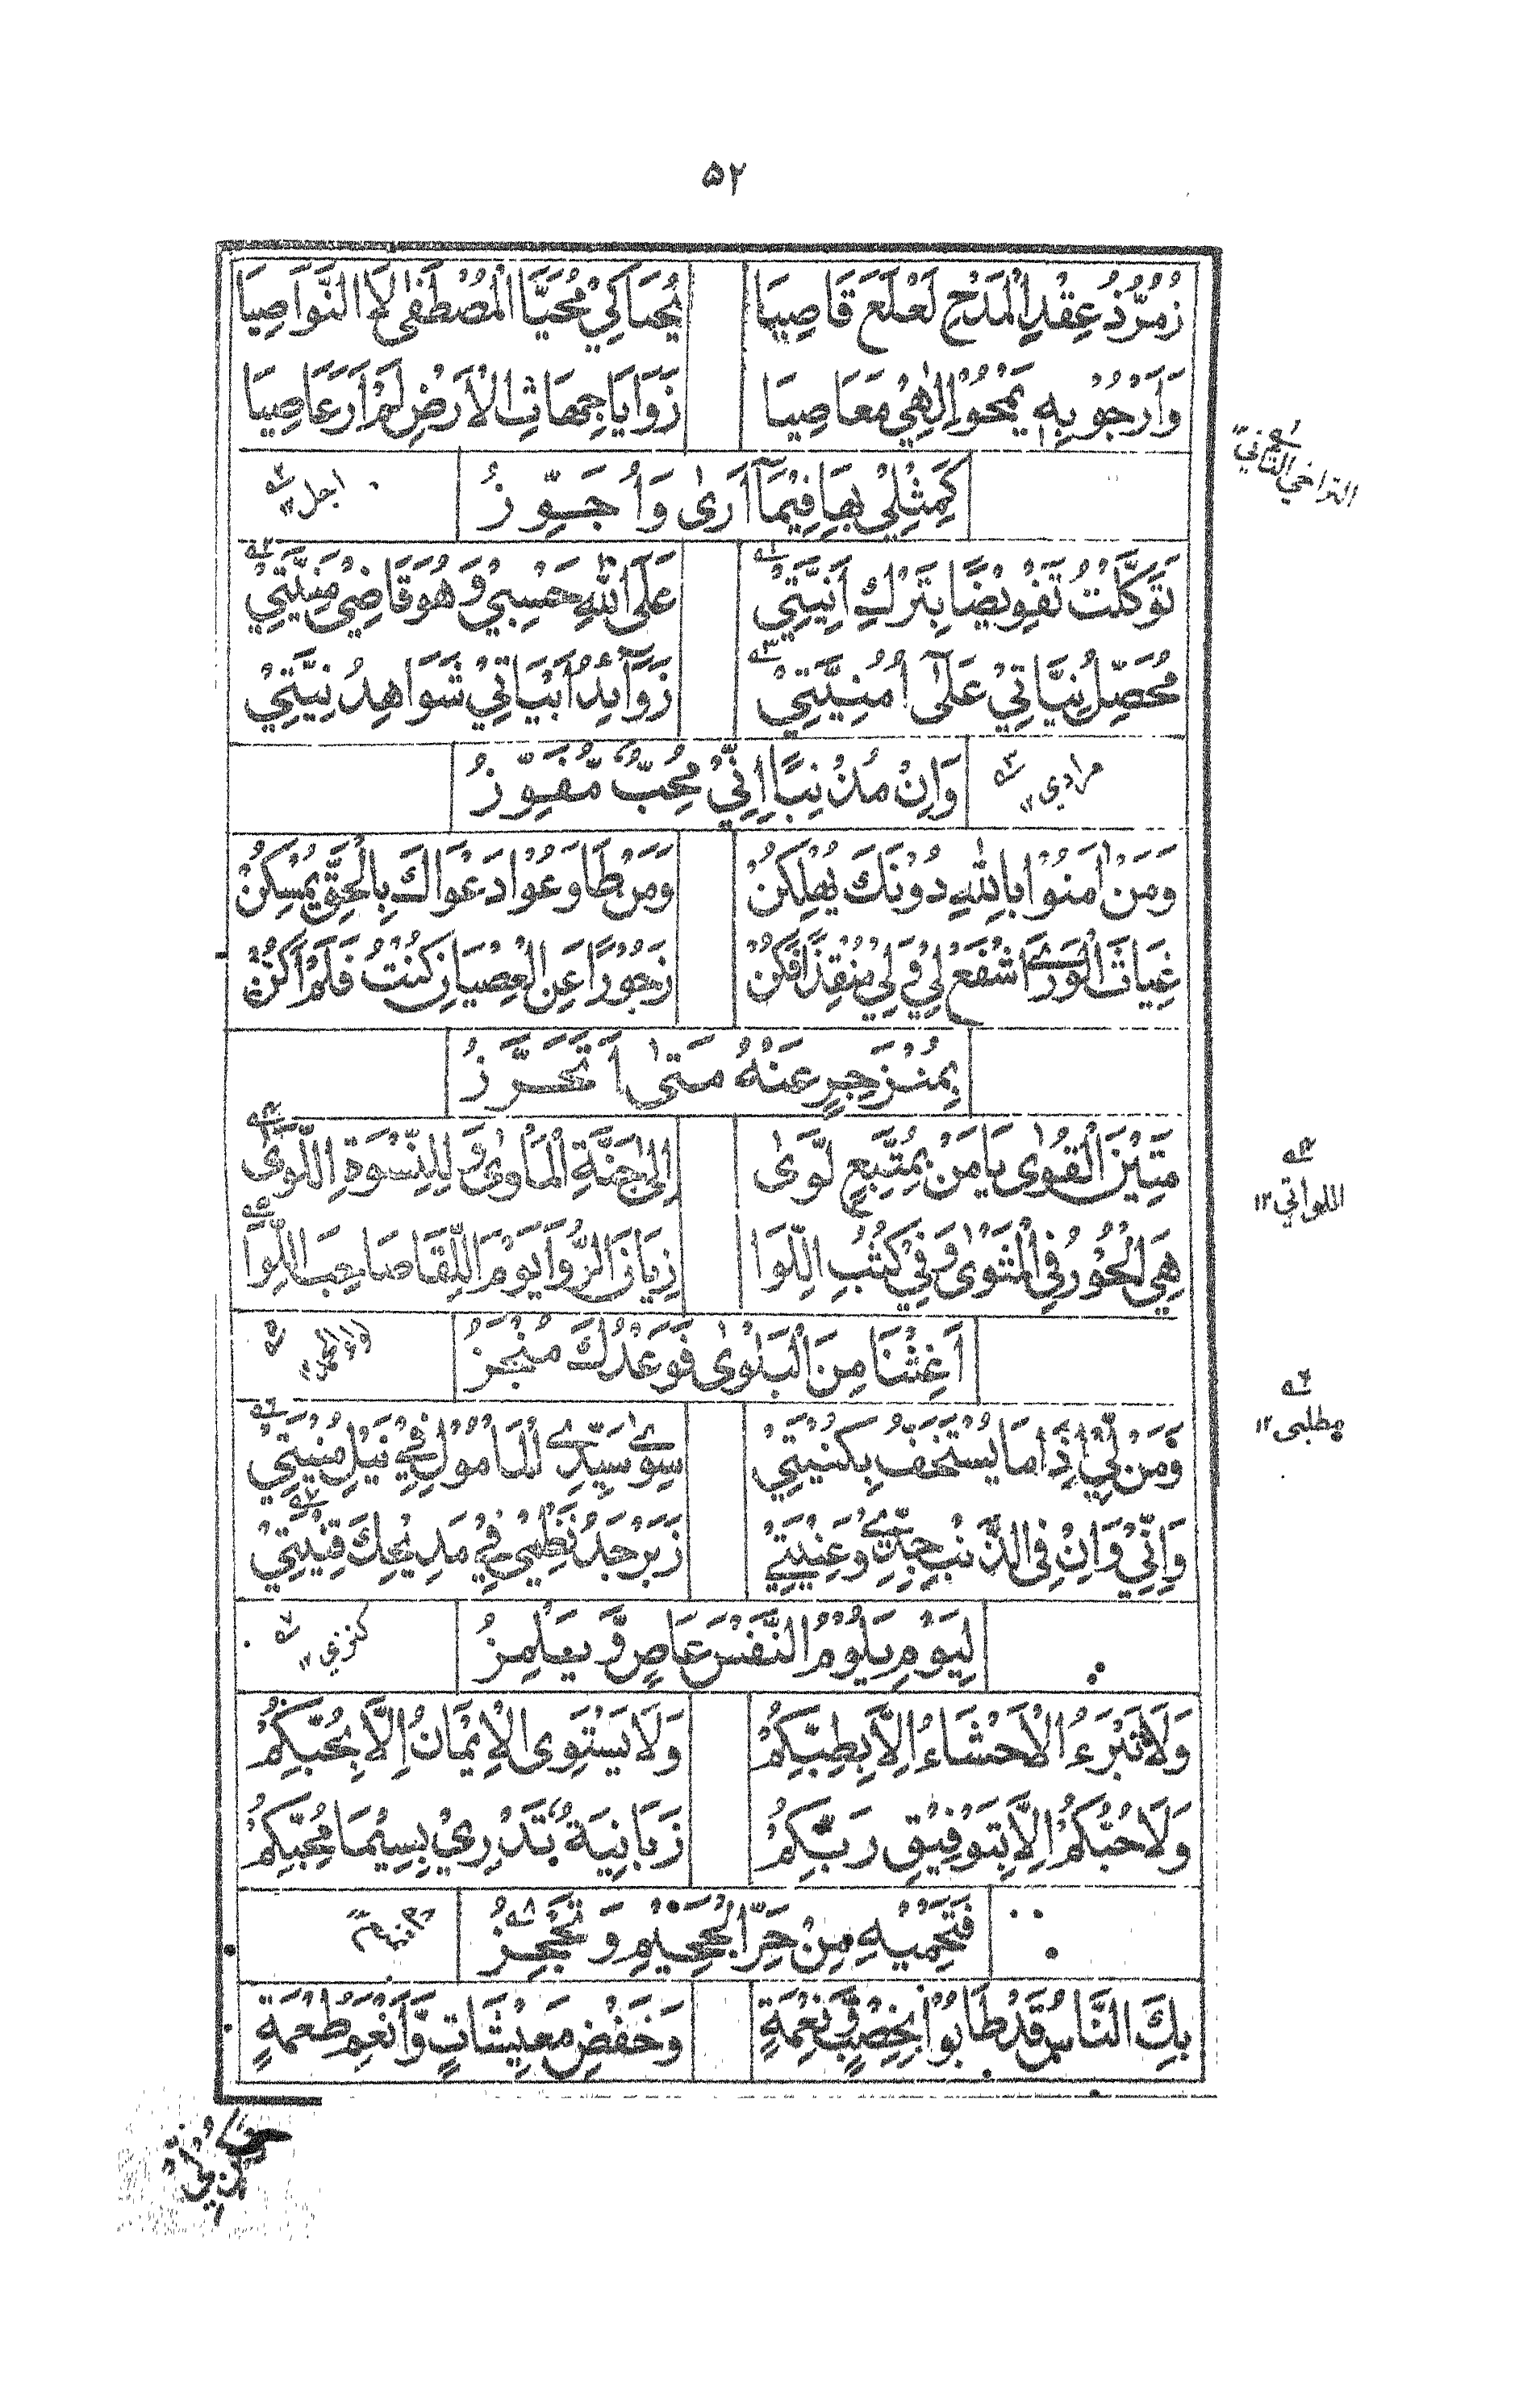 ۵۲
زُمُرُّذُ عِقْدِ الْمَدْحِ لَعْلَعَ قَاصِيَا يُحَاكِيْ مُحَيَّا الْمُصْطَفٰى لَا النَّوَاصِيَا
وَاَرْجُوْ بِهٖ يَمْحُوْ اِلٰهِيْ مَعَاصِيَا زَوَايَا جِهَاتِ الْاَرْضِ لَمْ اَرَ عَاصِيَا
كَمِثْلِيْ بِهَا فِيْمَآ اَرٰى وَاُجَوِّزُ
اجل ١٢
تَوَكَّلْتُ تَفْوِيْضًا بِتَرْكِ اَنِيَّتِيْ عَلَى اللهِ حَسْبِيْ وَهُوَ قَاضِيْ مَنِيَّتِيْ
مُحَصِّلُ نِيَّاتِيْ عَلٰى اُمْنِيَّتِيْ زَوَآئِدُ اَبْيَاتِيْ شَوَاهِدُ نِيَّتِيْ
وَاِنْ مُذْنِبًا اِنِّيْ مُحِبٌّ مُّفَوِّزُ
مرادي ١٢
وَمَنْ اٰمَنُوْا بِاللهِ دُوْنَكَ يُهْلَكُنْ وَمَنْ طَاوَعُوْا دَعْوَاكَ بِالْحَقِّ يُمْسِكُنْ
غِيَاثَ الْوَرٰى اشْفَعْ لِيْ وَلِيْ مُنْقِذًا فَكُنْ زَجُوْرًا عَنِ الْعِصْيَانِ كُنْتُ فَلَمْ اَكُنْ
بِمُنْزَجِرٍ عَنْهُ مَتٰى اَتَحَرَّزُ
مَتِيْنَ الْقُوٰى يَا مَنْ بِمُتَّبِعٍ لَّوٰى اِلٰى جَنَّةِ الْمَاْوٰى وَلِلنِّسْوَةِ اللَّوٰى
اللواتي ١٢
هِيَ الْحُوْرُ فِي الْمَثْوٰى وَفِيْ كُثُبِ اللِّوَا زِيَانَ الرُّوَا يَوْمَ اللِّقَا صَاحِبَ اللِّوَا
اَغِثْنَا مِنَ الْبَلْوٰى فَوَعْدُكَ مُنْجَزُ
وَمَنْ لِّيْ اِذَا مَا يُسْتَخَفُّ بِكُنْيَتِيْ سِوٰى سَيِّدِي الْمَامُوْلِ فِيْ نَيْلِ مُنْيَتِيْ
مطلبي ١٢
وَاِنِّيْ وَاِنْ فِي الذَّنْبِ جِدِّيْ وَعِنْيَتِيْ زَبَرْجَدُ نَظْمِيْ فِيْ مَدِيْحِكَ قِنْيَتِيْ
لِيَوْمٍ يَلُوْمُ النَّفْسَ عَاصٍ وَّيَعْلِمِزُ
كنزي ١٢
وَلَا تَبْرَءُ الْاَحْشَاءُ اِلَّا بِطِبِّكُمْ وَلَا يَسْتَوِى الْاِيْمَانُ اِلَّا بِحُبِّكُمْ
وَلَا حُبُّكُمْ اِلَّا بِتَوْفِيْقِ رَبِّكُمْ زَبَانِيَةٌ تَدْرِيْ بِسِيْمَا مُحِبِّكُمْ
فَتَحْمِيْهِ مِنْ حَرِّ الْجَحِيْمِ وَتَحْجِزُ
بِكَ النَّاسُ قَدْ طَابُوْا بِخِصْبٍ وَّنِعْمَةٍ وَخَفْضِ مَعِيْشَاتٍ وَّاَنْعَمِ طُعْمَةٍ